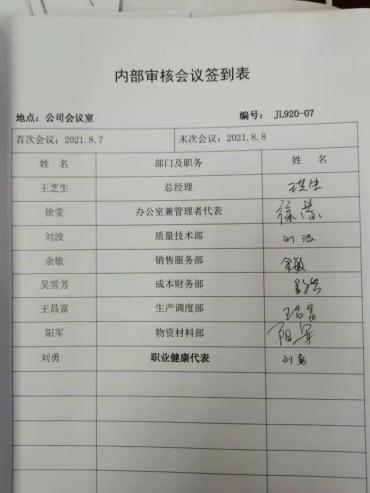 内部审核会议签到表
地点：公司会议室 编号： JL920-07
首次会议：2021.8.7 末次会议：2021.8.8
姓 名 部门及职务 姓 名
王芝生 总经理
徐莹 办公室兼管理者代表 徐莹
刘波 质量技术部 刘波
余敏 销售服务部 余敏
吴雪芳 成本财务部
王昌富 生产调度部 王昌富
阳军 物资材料部 阳军
刘勇 职业健康代表 刘勇